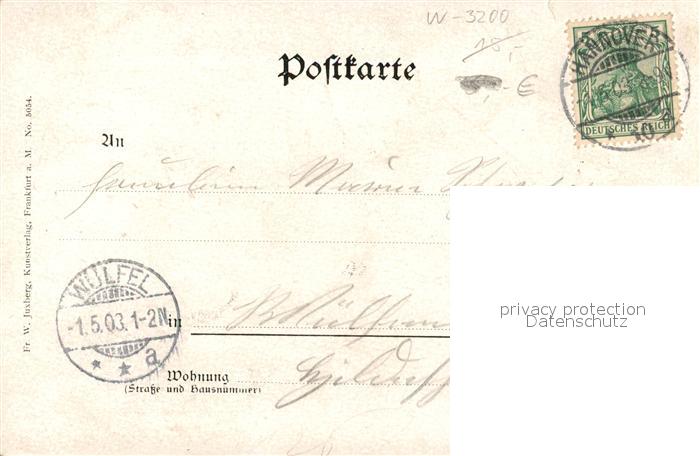 W-3200
18,-
Postkarte
,-€
HANNOVER
DEUTSCHES REICH
An
Fräulein
Fr. W. Juxberg, Kunstverlag, Frankfurt a. M. No. 5054.
WÜLFEL
-1.5.03. 1-2N.
* * a
in
Wohnung
(Straße und Hausnummer)
privacy protection
Datenschutz